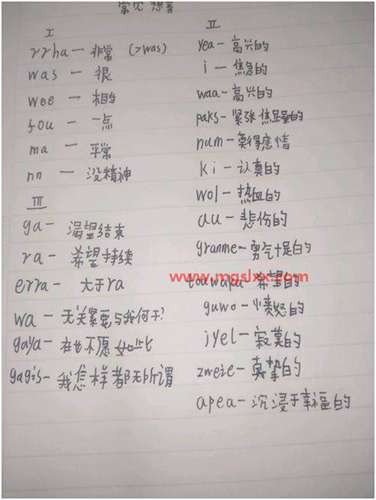 常见想音
I
rrha — 非常 (>was)
was — 很
wee — 相当
fou — 一点
ma — 平常
nn — 没精神
III
ga — 渴望结束
ra — 希望持续
erra — 大于ra
wa — 无关紧要与我何干?
gaya — 在也不愿如此
gagis — 我怎样都无所谓
II
yea — 高兴的
i — 焦急的
waa — 高兴的
paks — 紧张焦虑的
num — 莫得感情
ki — 认真的
wol — 热血的
au — 悲伤的
granme — 勇气十足的
www.mgslxx.com
希望的
guwo — 愤怒的
jyel — 寂寞的
zweie — 真挚的
apea — 沉浸于幸福的